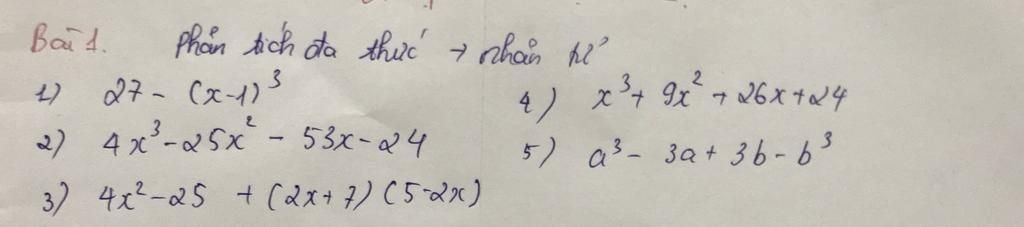 Bài 1. Phân tích đa thức → nhân tử
1) 27 - (x-1)³
2) 4x³-25x² - 53x-24
3) 4x²-25 + (2x+7)(5-2x)
4) x³+ 9x²+26x+24
5) a³- 3a+ 3b-b³